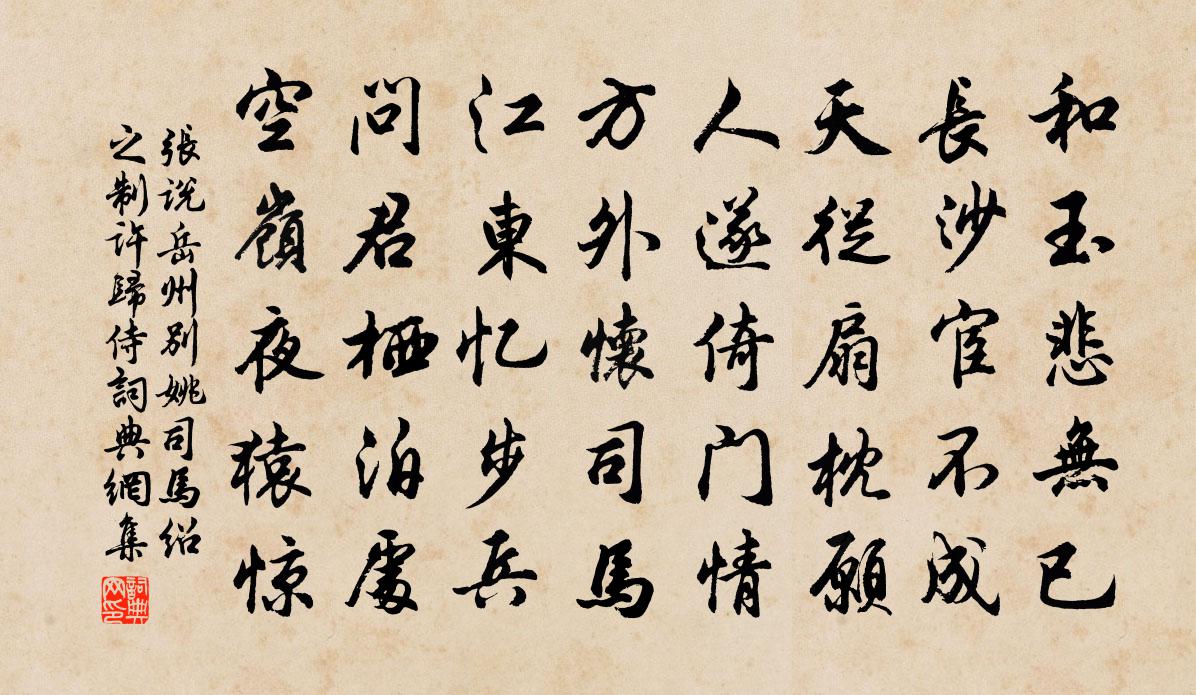 和玉悲無已
長沙宦不成
天従扇枕願
人遂倚门情
方外懷司馬
江東忆步兵
问君栖泊處
空嶺夜猿惊
張说岳州别姚司馬绍
之制許歸侍詞典網集
詞典网印